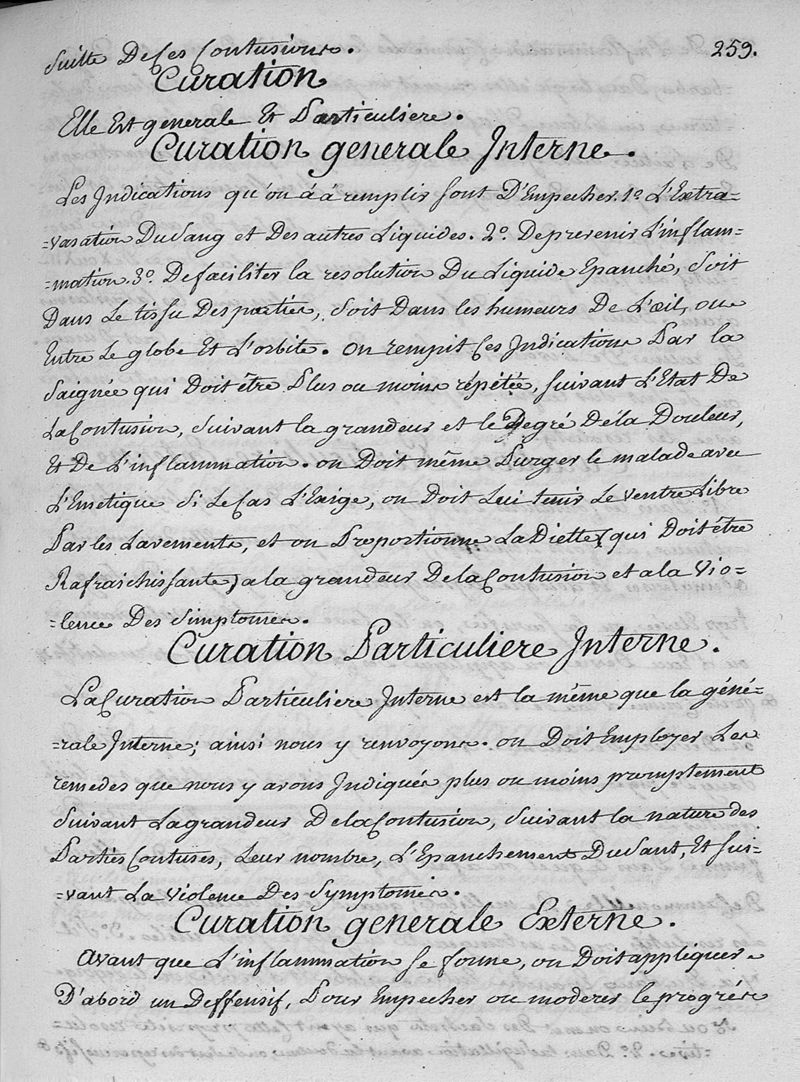 Suitte De Ces Contusions. 259.
Curation
Elle Est generale Et Particuliere.
Curation generale Interne.
Les Indications qu'on á á remplir sont D'Empecher. 1º. L'Extra=
=vasation Du Sang et Des autres Liquides. 2º. De prevenir L'inflam=
=mation. 3º. De faciliter la resolution Du Liquide Epanché, soit
Dans Le tissu Des parties, soit Dans les humeurs De L'œil, ou
Entre Le globe Et L'orbite. on rempit Ces Indications Par la
Saignée qui Doit être Plus ou moins répétée, suivant L'Etat De
La Contusion, suivant la grandeur et le Degré De la Douleur,
Et De L'inflammation. on Doit même Purger le malade avec
L'Emetique Si Le Cas L'Exige, on Doit Lui tenir Le ventre Libre
Par les Lavements, et on Proportionne La Diette (qui Doit être
Rafraichissante) a la grandeur De la Contusion et a la Vio=
=lence Des Simptomes.
Curation Particuliere Interne.
La Curation Particuliere Interne est la même que la géné=
=rale Interne; ainsi nous y renvoyons. on Doit Employer Les
remedes que nous y avons Indiqués plus ou moins promptement
Suivant La grandeur De la Contusion, suivant la nature des
Parties Contuses, Leur nombre, L'Epanchement Du Sant, Et sui=
=vant La violence Des Symptomes.
Curation generale Externe.
Avant que L'inflammation se forme, on Doit appliquer
D'abord un Deffensif, Pour Empecher ou moderer le progrés